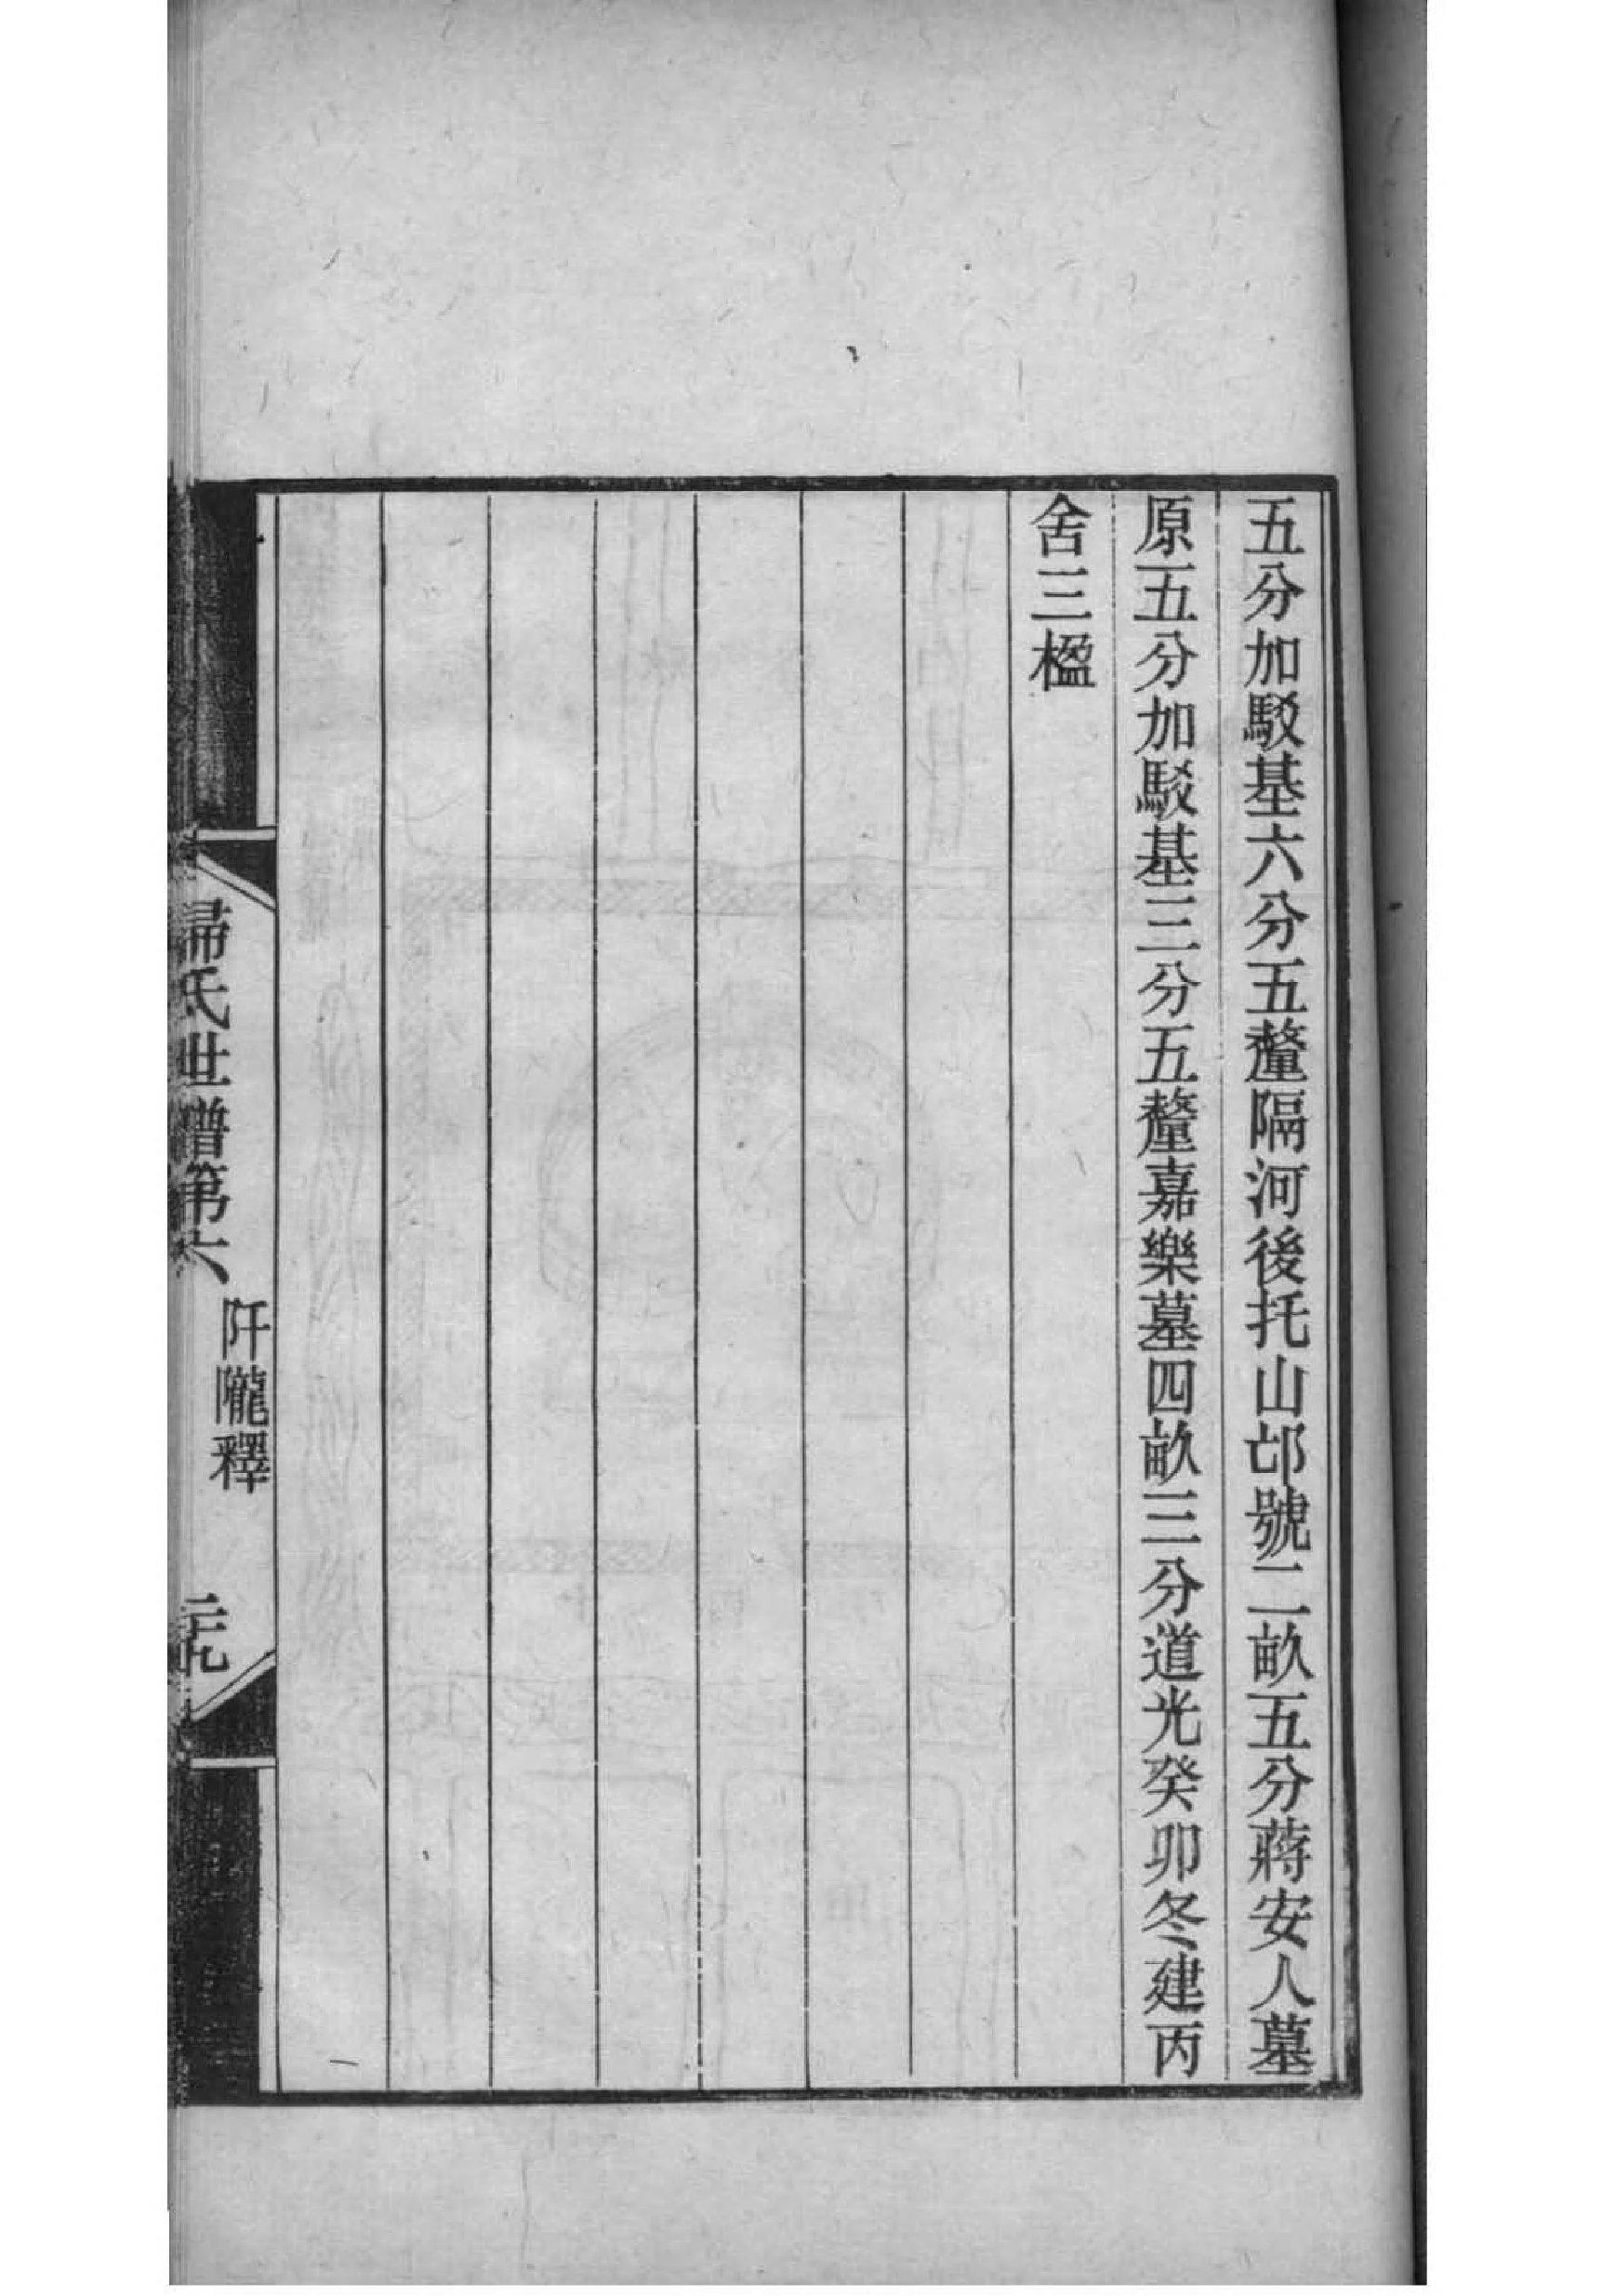 五分加駁基六分五釐隔河後托山邙號二畝五分蔣安人墓
原五分加駁基三分五釐嘉樂墓四畝三分道光癸卯冬建丙
舍三楹
歸氏世譜第六
阡隴釋
三九